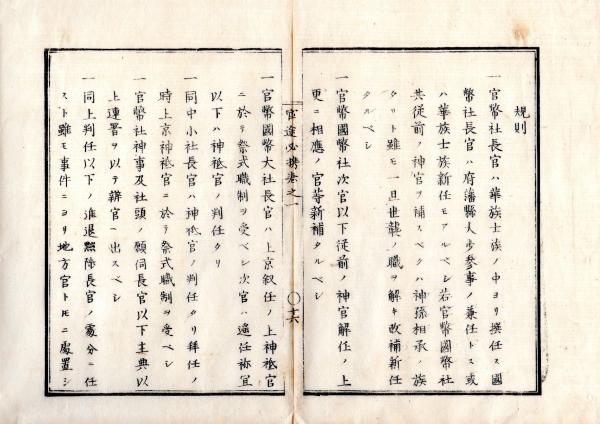 規則
一官幣社長官ハ華族士族ノ中ヨリ撰任ス國
幣社長官ハ府藩縣人歩參事ノ兼任トス或
ハ華族士族新任モアルベシ若官幣國幣社
共從前ノ神官ヲ補スベクハ神孫相承ノ族
タリト雖モ一旦世襲ノ職ヲ解キ改補新任
タルベシ
一官幣國幣社次官以下從前ノ神官解任ノ上
更ニ相應ノ官等新補タルベシ
官途必携巻之一
〇十六
一官幣國幣大社長官ハ上京叙任ノ上神祇官
ニ於テ祭式職制ヲ受ベシ次官ハ遙任祢宜
以下ハ神祇官ノ判任タリ
一同中小社長官ハ神祇官ノ判任タリ拜任ノ
時上京神祇官ニ於テ祭式職制ヲ受ベシ
一官幣社神事及社頭ノ願伺長官以下主典以
上連署ヲ以テ辨官ヘ出スベシ
一同上判任以下ノ進退黜陟長官ノ處分ニ任
スト雖モ事件ニヨリ地方官トモニ處置シ